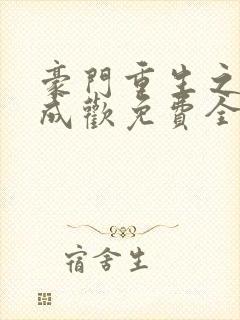 豪門重生之
成歡免費全
宿舍生